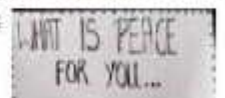 WHAT IS PEACE
FOR YOU...